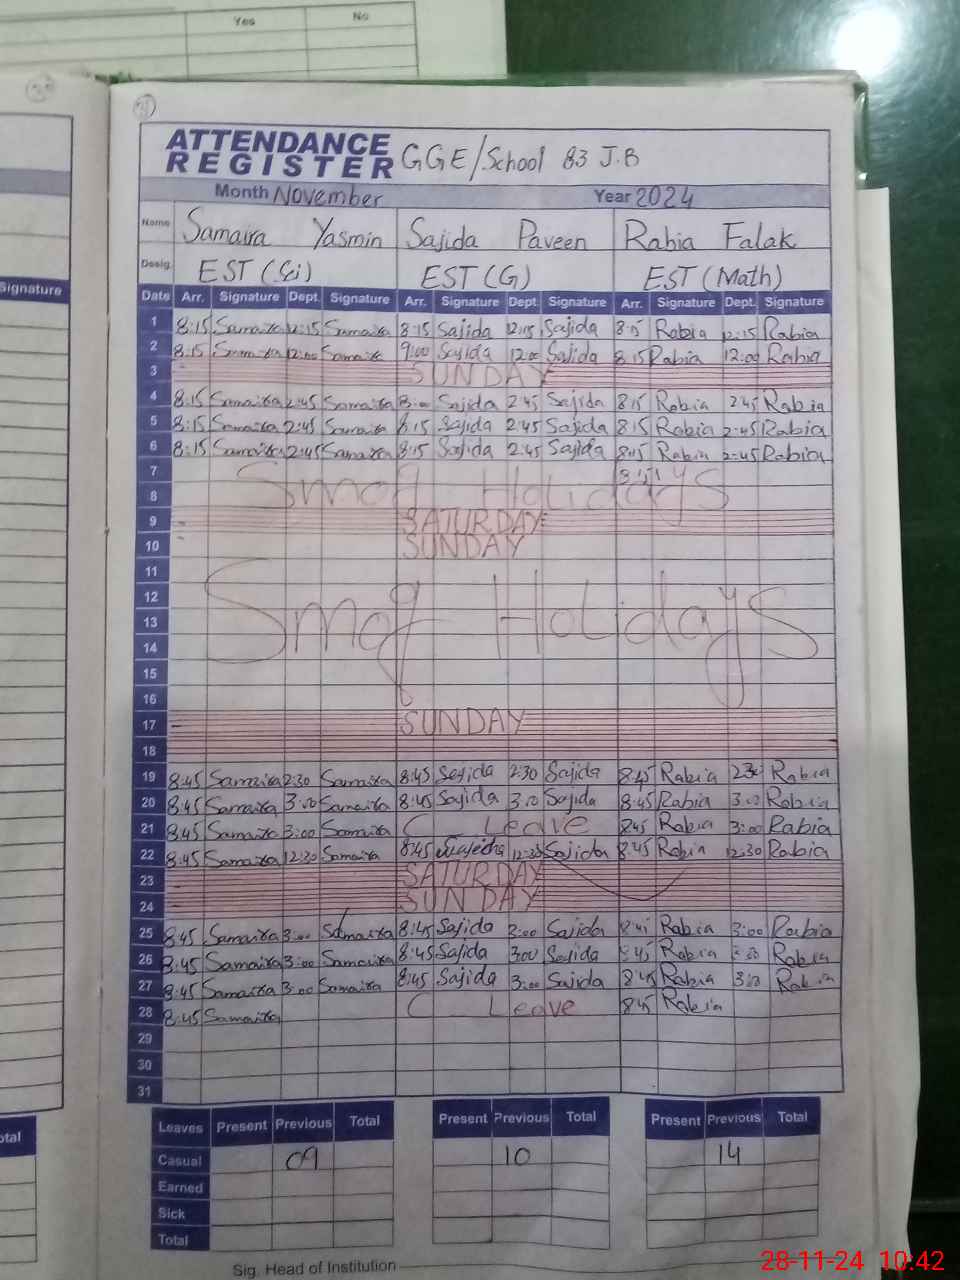 Yes No
31
ATTENDANCE
REGISTER GGE/School 83 J.B
Month November Year 2024
Name Samaira Yasmin Sajida Paveen Rabia Falak
Desig. EST (Sci) EST (G) EST (Math)
Signature
Date Arr. Signature Dept. Signature Arr. Signature Dept. Signature Arr. Signature Dept. Signature
1 8:15 Samaira 12:15 Samaira 8:15 Sajida 12:15 Sajida 8:15 Rabia 12:15 Rabia
2 8:15 Samaira 12:00 Samaira 9:00 Sajida 12:00 Sajida 8:15 Rabia 12:00 Rabia
3 SUNDAY
4 8:15 Samaira 2:45 Samaira 8:00 Sajida 2:45 Sajida 8:15 Rabia 2:45 Rabia
5 8:15 Samaira 2:45 Samaira 8:15 Sajida 2:45 Sajida 8:15 Rabia 2:45 Rabia
6 8:15 Samaira 2:45 Samaira 8:15 Sajida 2:45 Sajida 8:15 Rabia 2:45 Rabia
7
8 Smog Holidays
9 SATURDAY
10 SUNDAY
11
12
13 Smog Holidays
14
15
16
17 SUNDAY
18
19 8:45 Samaira 2:30 Samaira 8:45 Sajida 2:30 Sajida 8:45 Rabia 2:30 Rabia
20 8:45 Samaira 3:00 Samaira 8:45 Sajida 3:00 Sajida 8:45 Rabia 3:00 Rabia
21 8:45 Samaira 3:00 Samaira C Leave 8:45 Rabia 3:00 Rabia
22 8:45 Samaira 12:30 Samaira 8:45 12:30 Sajida 8:45 Rabia 12:30 Rabia
23 SATURDAY
24 SUNDAY
25 8:45 Samaira 3:00 Samaira 8:45 Sajida 3:00 Sajida 8:45 Rabia 3:00 Rabia
26 8:45 Samaira 3:00 Samaira 8:45 Sajida 3:00 Sajida 8:45 Rabia 3:00 Rabia
27 8:45 Samaira 3:00 Samaira 8:45 Sajida 3:00 Sajida 8:45 Rabia 3:00 Rabia
28 8:45 Samaira C Leave 8:45 Rabia
29
30
31
Leaves Present Previous Total Present Previous Total Present Previous Total
Casual 09 10 14
Earned
Sick
Total
Sig. Head of Institution
28-11-24 10:42